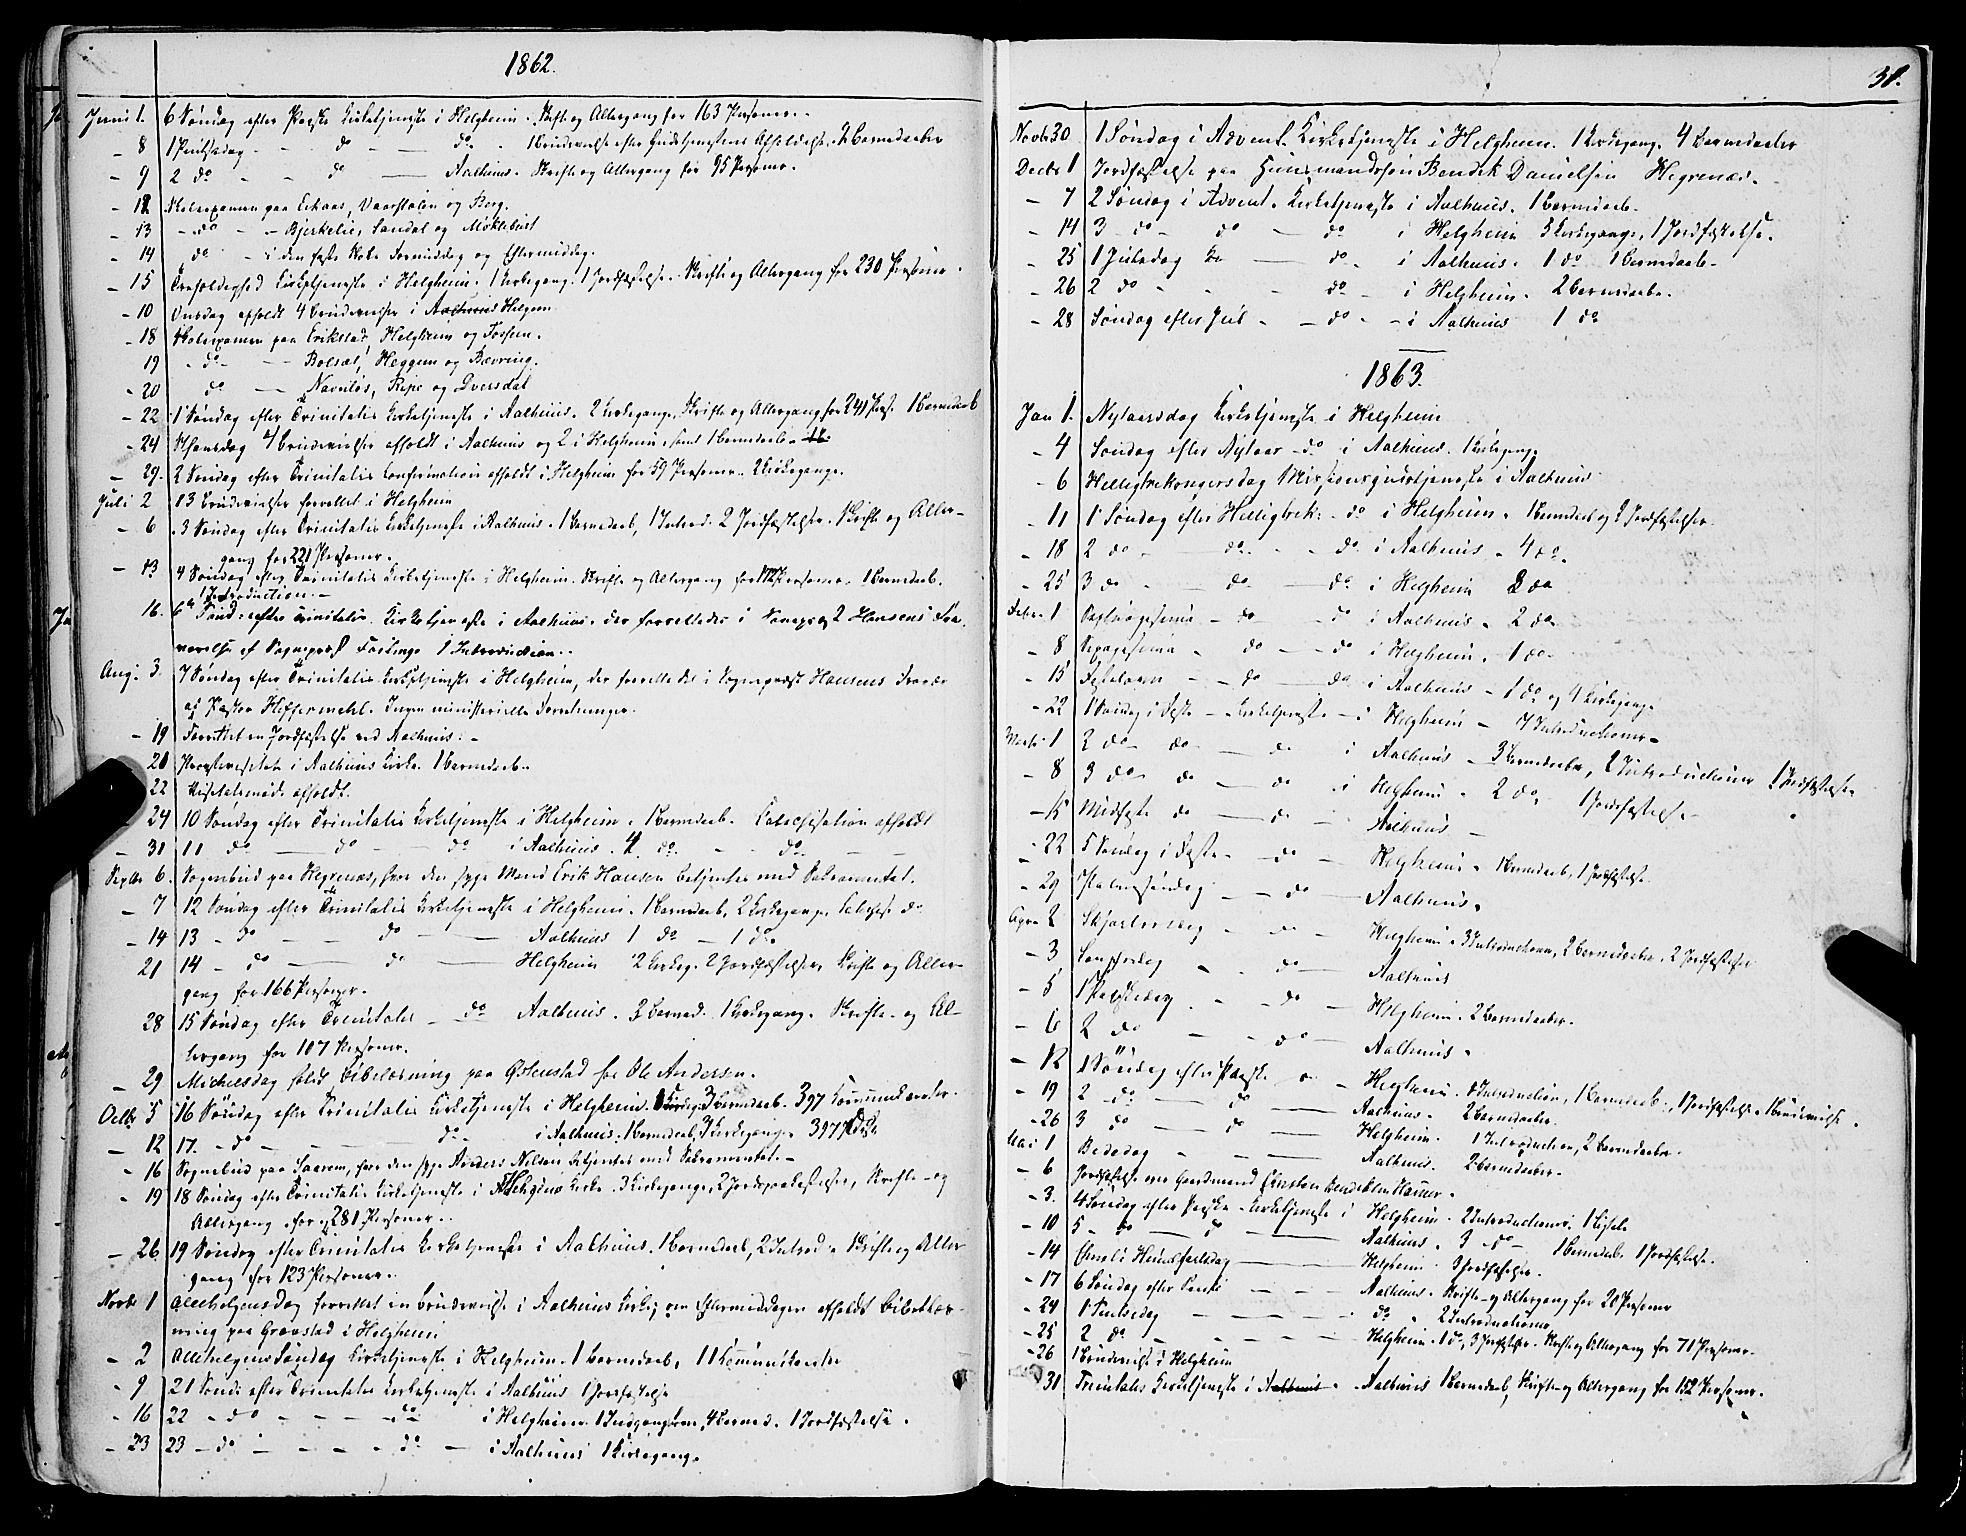 1862.
Juni 1. 6 Søndag efter Paaske Kirketjeneste i Helgheim. Skrifte og Altergang for 163 Personer.
- 8 1 Pintsedag - do - do 1 Brudevielse efter Gudstjenestens Afholdelse, 2 Barnedaab
- 9 2 do - - do - Aalhuus. Skrifte og Altergang for 95 Personer.
- 12 Skoleexamen paa Eehaas, Vaarstølen og Berg.
- 13 - do - - Bjerkelie, Sandal og Møklebust
- 14 do - i den faste Skole Formiddag og Eftermiddag.
- 15 Trefoldighed Kirketjeneste i Helgheim. 1 Kirkegang. 1 Jordfæstelse. Skrifte og Altergang for 230 Personer.
- 10 Onsdag afholdt 4 Brudevielser i Aalhuus Helgem
- 18 Skoleexamen paa Erikstad, Helgheim og Fossen.
19 - do - - Bolsæt, Heggem og Bævring.
- 20 do - Navnløs, Ripe og Dversdal
- 22 1 Søndag efter Trinitatis Kirketjeneste i Aalhuus. 2 Kirkegange, Skrifte og Altergang for 241 Pers. 1 Barnedaab
- 24 St. Hansdag 4 Brudevielser afholdt i Aalhuus og 2 i Helgheim, samt 1 Barnedaab.
- 29. 2 Søndag efter Trinitatis Confirmation afholdt i Helgheim for 59 Personer. 2 Kirkegange.
Juli 2 13 Brudevielser forrettet i Helgheim
- 6 3 Søndag efter Trinitatis Kirketjeneste i Aalhuus. 1 Barnedaab, 1 Introd. 2 Jordfæstelser. Skrifte og Alter-
gang for 221 Personer.
- 13 4 Søndag efter Trinitatis Kirketjeneste i Helgheim. Skrifte og Altergang for Personer. 1 Barnedaab.
1 Introduction.
16. 6te Sønd: efter Trinitatis Kirketjeneste i Aalhuus. der forrettedes i Sognepræst Hansens Fra-
værelse af Sognepræst 1 Introduction.
Aug: 3. 7 Søndag efter Trinitatis Kirketjeneste i Helgheim, der forrettedes i Sognepræst Hansens Fravær
af Pastor Heffermehl. Ingen ministerielle Forretninger.
- 19 Forrettet en Jordfæstelse ved Aalhuus.
20 Provstevisitats i Aalhuus Kirke. 1 Barnedaab.
22 Visitatsmøde afholdt.
24 10 Søndag efter Trinitatis Kirketjeneste i Helgheim. 1 Barnedaab. Catechisation afholdt
- 31 11 do - do - do i Aalhuus. 4 do. - do. -
Septbr 6. Sognebud paa Hegrenæs, hvor den syge Mand Erik Hansen betjentes med Sakramentet.
- 7 12 Søndag efter Trinitatis Kirketjeneste i Helgheim. 1 Barnedaab, 2 Kirkegange, do
- 14 13 - do - - do - Aalhuus 1 do - 1 do.
21 14 - do - do - Helgheim 2 Kirkeg. 2 Jordfæstelser, Skrifte og Alter-
gang for 166 Personer.
28 15 Søndag efter Trinitatis - do Aalhuus. 3 Barned. 1 Kirkegang. Skrifte- og Al-
tergang for 107 Personer.
- 29 Michelsdag holdt Bibellæsning paa Østenstad for Ole Andersen.
Octbr 5 16 Søndag efter Trinitatis Kirketjeneste i Helgheim. 3 Barnedaab. 397 Kommunikanter.
- 12 17. - do - - do - i Aalhuus. 1 Barnedaab, 3 Kirkegange
- 16 Sognebud paa Saarem, hvor den syge Anders Nilsen betjentes med Sakramentet.
- 19 18 Søndag efter Trinitatis Kirketjeneste i Helgheims Kirke. 3 Kirkegange, 2 Jordpaakastelser, Skrifte- og
Altergang for 281 Personer.
- 26 19 Søndag efter Trinitatis Kirketjeneste i Aalhuus. 1 Barnedaab, 2 Introd. Skrifte og Alter
gang for 123 Personer.
Novbr 1 Allehelgensdag forrettet en Brudevielse i Aalhuus Kirke; om Eftermiddagen afholdt Bibelklær-
ning paa Gravstad i Helgheim
- 2 Allehelgens Søndag Kirketjeneste i Helgheim. 1 Barnedaab, 11 Communikanter
- 9 21 Sønd: efter Trinitatis Kirketjeneste i Aalhuus 1 Jordfæstelse
- 16 22 - do - - - do i Helgheim. 4 Barned. 1 Jordfæstelse.
- 23 23 - do - - - do - i Aalhuus 1 Kirkegang.
38.
Novbr 30 1 Søndag i Advent. Kirketjeneste i Helgheim. 1 Kirkegang. 4 Barnedaab
Decbr 1 Jordfæstelse paa Huusmandssøn Bendik Danielsen Hegrenæs.
- 7 2 Søndag i Advent. Kirketjeneste i Aalhuus. 1 Barnedaab.
- 14 3 - do - do - do i Helgheim 3 Kirkegange, 1 Jordfæstelse.
- 25 1 Juledag - do - i Aalhuus. 1 do 1 Barnedaab.
- 26 2 do - - do - i Helgheim. 2 Barnedaab.
- 28 Søndag efter Jul - - do - - i Aalhuus 1 do
1863.
Jan 1. Nytaarsdag Kirketjeneste i Helgheim
- 4 Søndag efter Nytaar - do i Aalhuus. 1 Kirkegang.
- 6 Helligtrekongersdag Missionsgudstjeneste i Aalhuus
- 11 1 Søndag efter Helligtrek: - do i Helgheim. 1 Barnedaab og 2 Jordfæstelser.
- 18 2 do - - do - - do i Aalhuus - 4 do.
- 25 3 do - do - do i Helgheim 2 do
Febr 1 Septuagesima - do - do i Aalhuus. 2 do
- 8 Sexagesima - do - do i Helgheim. 1 do
- 15 Fastelavn - do - do i Aalhuus - 1 do og 4 Kirkegang.
- 22 1 Søndag i Faste - Kirketjeneste - i Helgheim - 7 Introductioner.
Marts 1 2 do do - do i Aalhuus - 3 Barnedaab, 2 Introductioner 1 Jordfæstelse.
- 8 3 do do - do i Helgheim. 2 do. 1 Jordfæstelse.
- 15 Midfaste do - do - Aalhuus -
- 22 5 Søndag i Faste - do - Helgheim. 1 Barnedaab, 1 Jordfæstelse.
- 29 Palmesøndag - - do - Aalhuus.
April 2 Skjærtorsdag - do - Helgheim. 3 Introductioner, 2 Barnedaab, 2 Jordfæstelser
- 3 Langfredag - do - Aalhuus
- 5 1 Paaskedag - - do - Helgheim. 2 Barnedaab.
- 6 2 do - - do - Aalhuus.
- 12 1 Søndag efter Paaske - Helgheim. 1 Introduction, 1 Barnedaab, 1 Jordfæstelse 1 Brudevielse.
- 19 2 do - do - Aalhuus. 2 Barnedaab.
- 26 3 do - do - Helgheim. 1 Introduction, 2 Barnedaab.
Mai 1 Bededag - - - Aalhuus. 2 Barnedaab.
- 6 Jordfæstelse over Gaardmand
- 3. 4 Søndag efter Paaske Kirketjeneste i Helgheim. 2 Introductioner.
- 10 5 - do - do - Aalhuus. 3 do - 1 Barnedaab 1 Jordfæstelse.
- 14 Christi Himmelfartsdag - Helgheim. 3 Jordfæstelser.
- 17 6 Søndag efter Paaske - - Aalhuus. Skrifte- og Altergang for 20 Personer
- 24 1 Pintsedag - - - do 2 Introductioner
- 25 2 do - - - Helgheim. 1 do, 3 Jordfæstelser. Skrifte og Altergang for 71 Personer.
- 26 1 Brudevielse i Helgheim
31 Trinitatis Kirketjeneste i Aalhuus. Aalhuus 1 Barnedaab, Skrifte- og Altergang for 152 Personer.